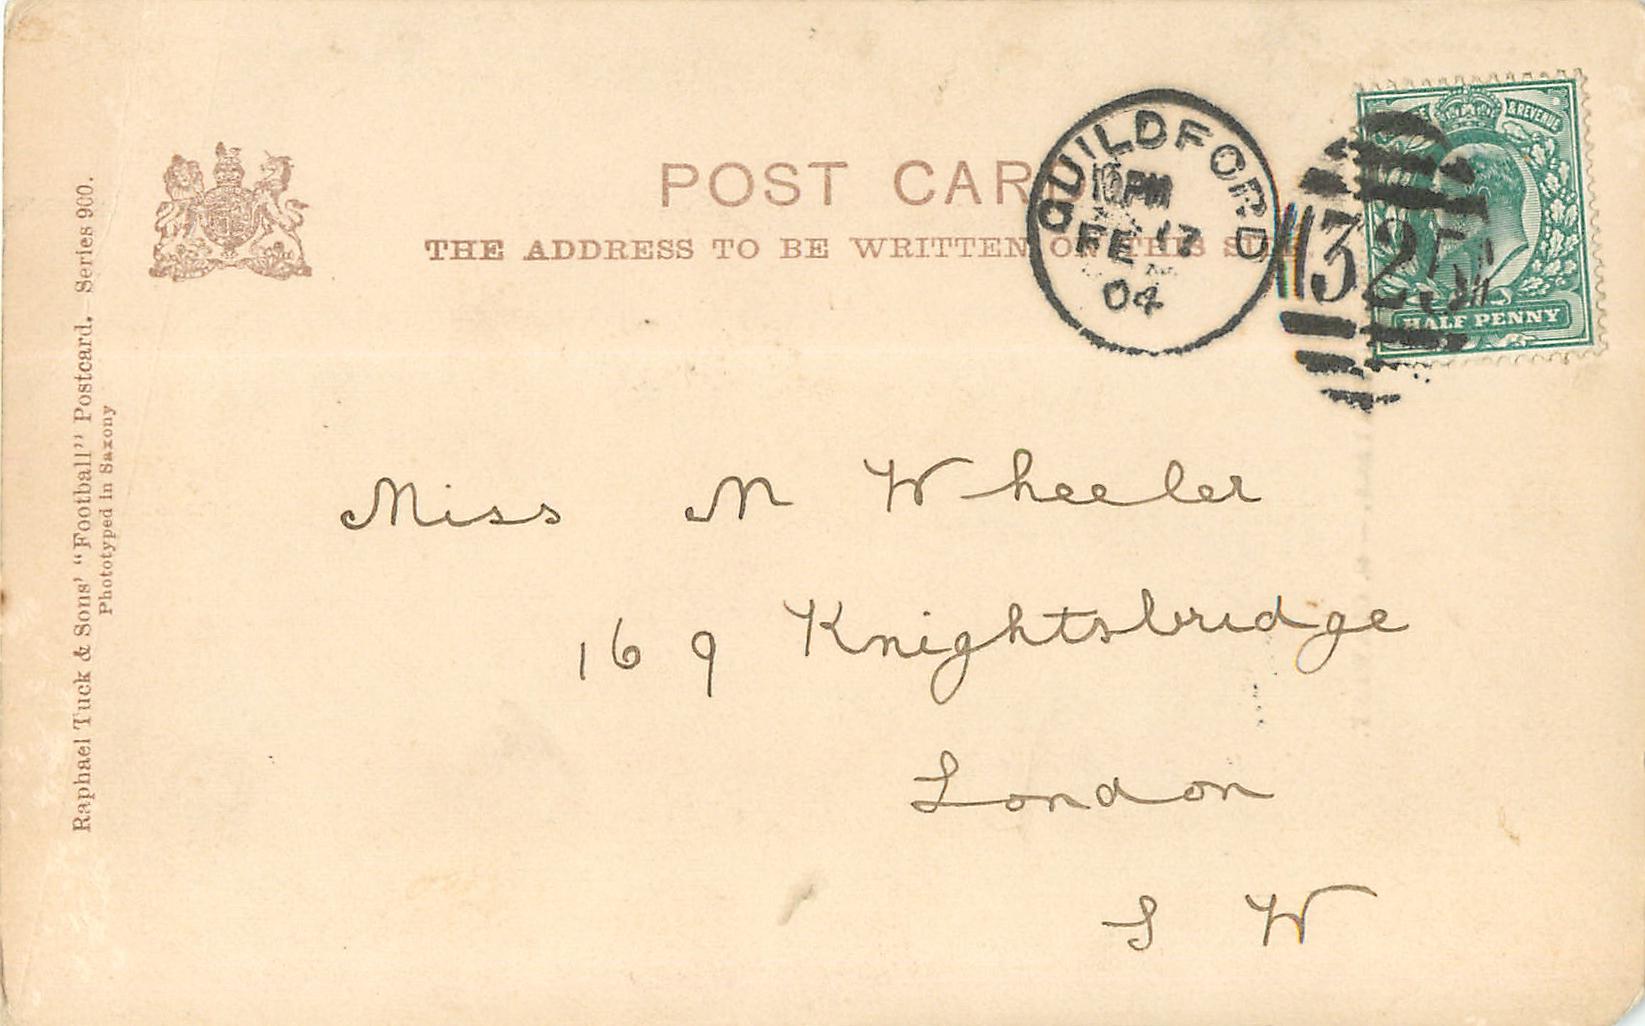 POST CAR
THE ADDRESS TO BE WRITTEN ON THIS SIDE
GUILDFORD
PM
FE 17
04
325
& REVENUE
HALF PENNY
Miss M Wheeler
169 Knightsbridge
London
S W
Raphael Tuck & Sons' "Football" Postcard. Series 900.
Phototyped in Saxony